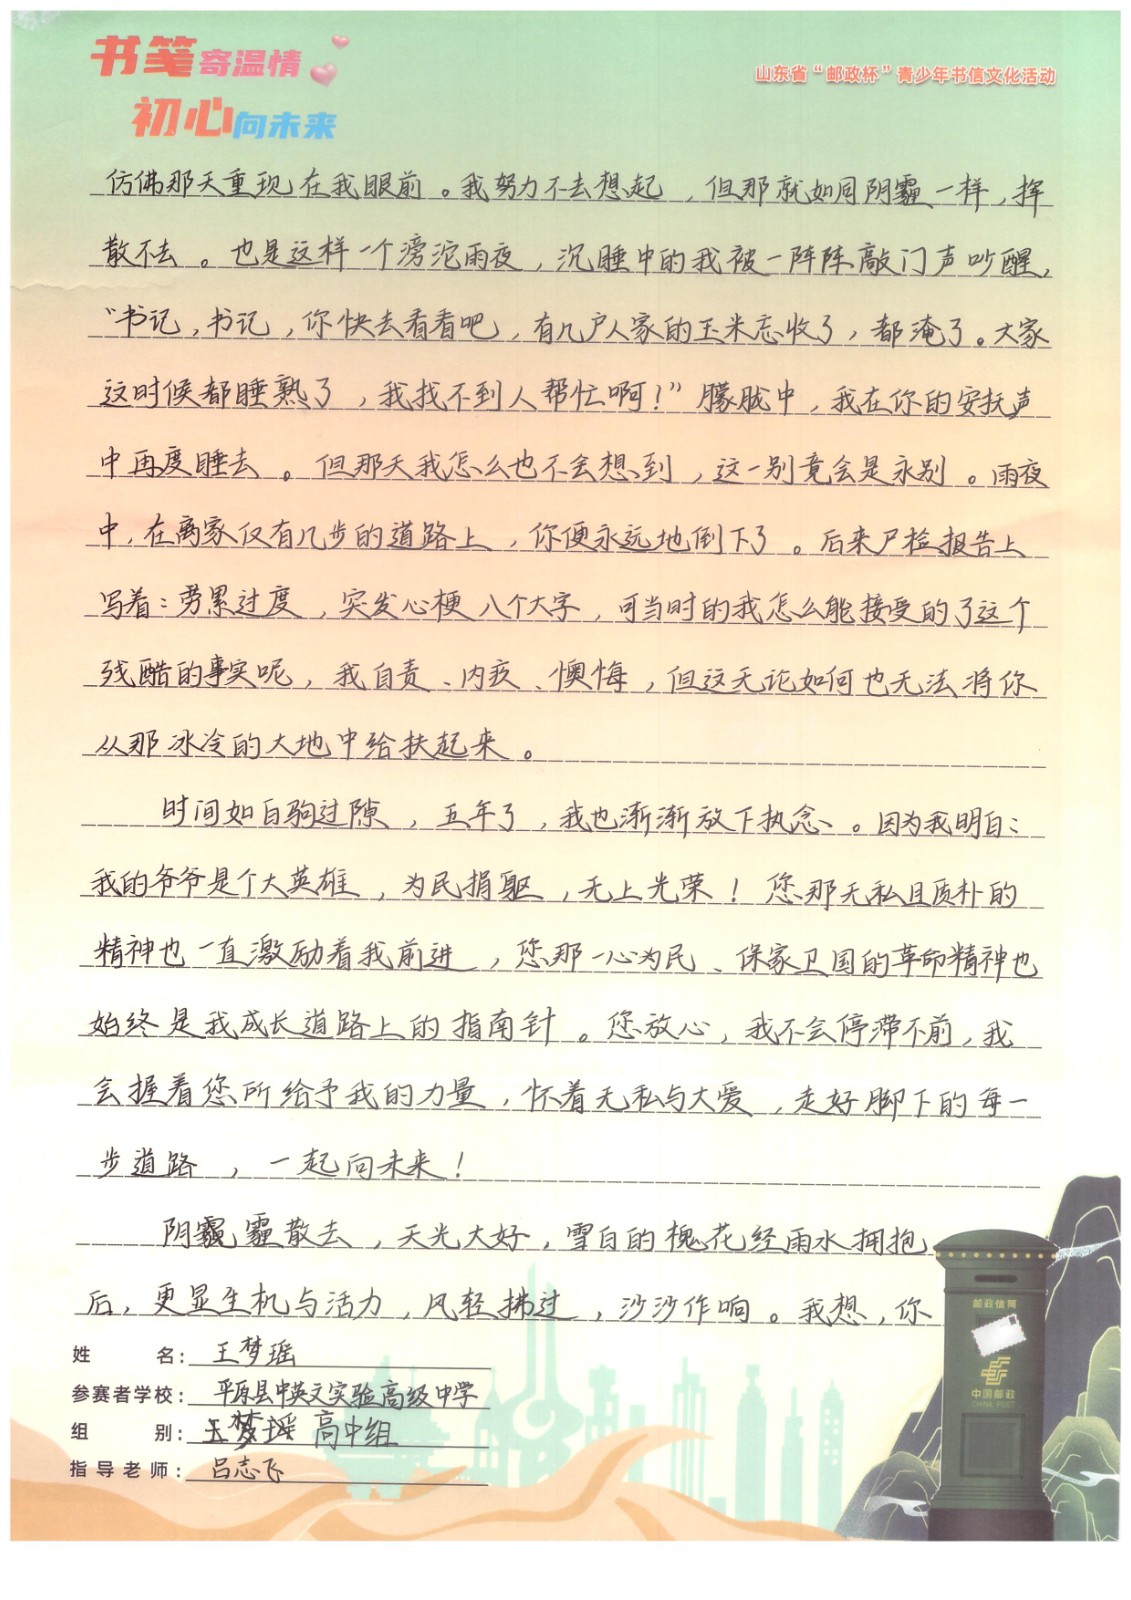 书笺寄温情
初心向未来
山东省“邮政杯”青少年书信文化活动
仿佛那天重现在我眼前。我努力不去想起，但那就如同阴霾一样，挥
散不去。也是这样一个滂沱雨夜，沉睡中的我被一阵阵敲门声吵醒，
“书记，书记，你快去看看吧，有几户人家的玉米忘收了，都淹了。大家
这时候都睡熟了，我找不到人帮忙啊！”朦胧中，我在你的安抚声
中再度睡去。但那天我怎么也不会想到，这一别竟会是永别。雨夜
中，在离家仅有几步的道路上，你便永远地倒下了。后来尸检报告上
写着：劳累过度，突发心梗八个大字，可当时的我怎么能接受的了这个
残酷的事实呢，我自责、内疚、懊悔，但这无论如何也无法将你
从那冰冷的大地中给扶起来。
时间如白驹过隙，五年了，我也渐渐放下执念、。因为我明白：
我的爷爷是个大英雄，为民捐躯，无上光荣！您那无私且质朴的
精神也一直激励着我前进，您那一心为民、保家卫国的革命精神也
始终是我成长道路上的指南针。您放心，我不会停滞不前，我
会握着您所给予我的力量，怀着无私与大爱，走好脚下的每一
步道路，一起向未来！
阴霾散去，天光大好，雪白的槐花经雨水拥抱
后，更显生机与活力，风轻拂过，沙沙作响。我想，你
姓名：王梦瑶
参赛者学校：平原县中英文实验高级中学
组别：王梦瑶 高中组
指导老师：吕志飞
邮政信筒
中国邮政
CHINA POST